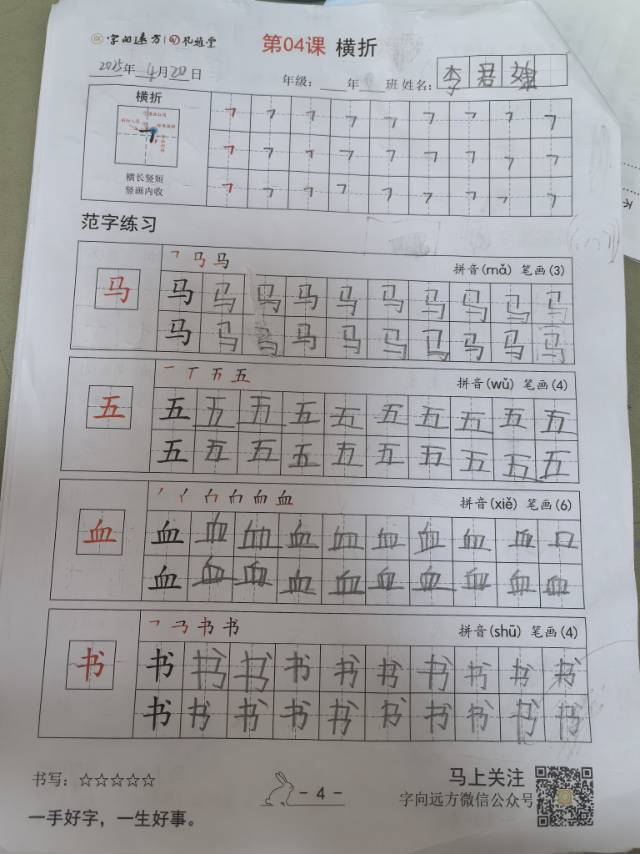 字向远方 礼雅堂
第04课 横折
2025年 4月20日 年级：____年 班 姓名：李君
横折
横长竖短
竖画内收
范字练习
马 拼音(mǎ) 笔画(3)
马 马 马 马 马 马 马 马 马 马 马
马 马 马 马 马 马 马 马 马 马
五 拼音(wǔ) 笔画(4)
五 五 五 五 五 五 五 五 五 五 五
五 五 五 五 五 五 五 五 五 五
血 拼音(xiě) 笔画(6)
血 血 血 血 血 血 血 血 血 血
血 血 血 血 血 血 血 血 血 血
书 拼音(shū) 笔画(4)
书 书 书 书 书 书 书 书 书 书 书
书 书 书 书 书 书 书 书 书 书
书写：☆☆☆☆☆
一手好字，一生好事。
- 4 -
马上关注
字向远方微信公众号